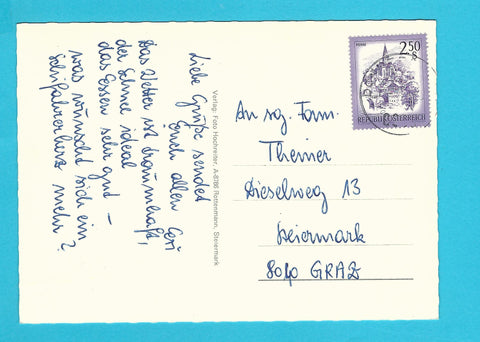 Das Wetter ist traumhaft,
der Schnee ideal
das Essen sehr gut –
was wünscht sich ein
Schifahrerherz mehr?
Liebe Grüße sendet
Euch allen Geri
Verlag: Foto Hochreiter, A-8786 Rottenmann, Steiermark
2.50
S
REPUBLIK ÖSTERREICH
An sg. Fam.
Theiner
Dieselweg 13
Steiermark
8010 GRAZ